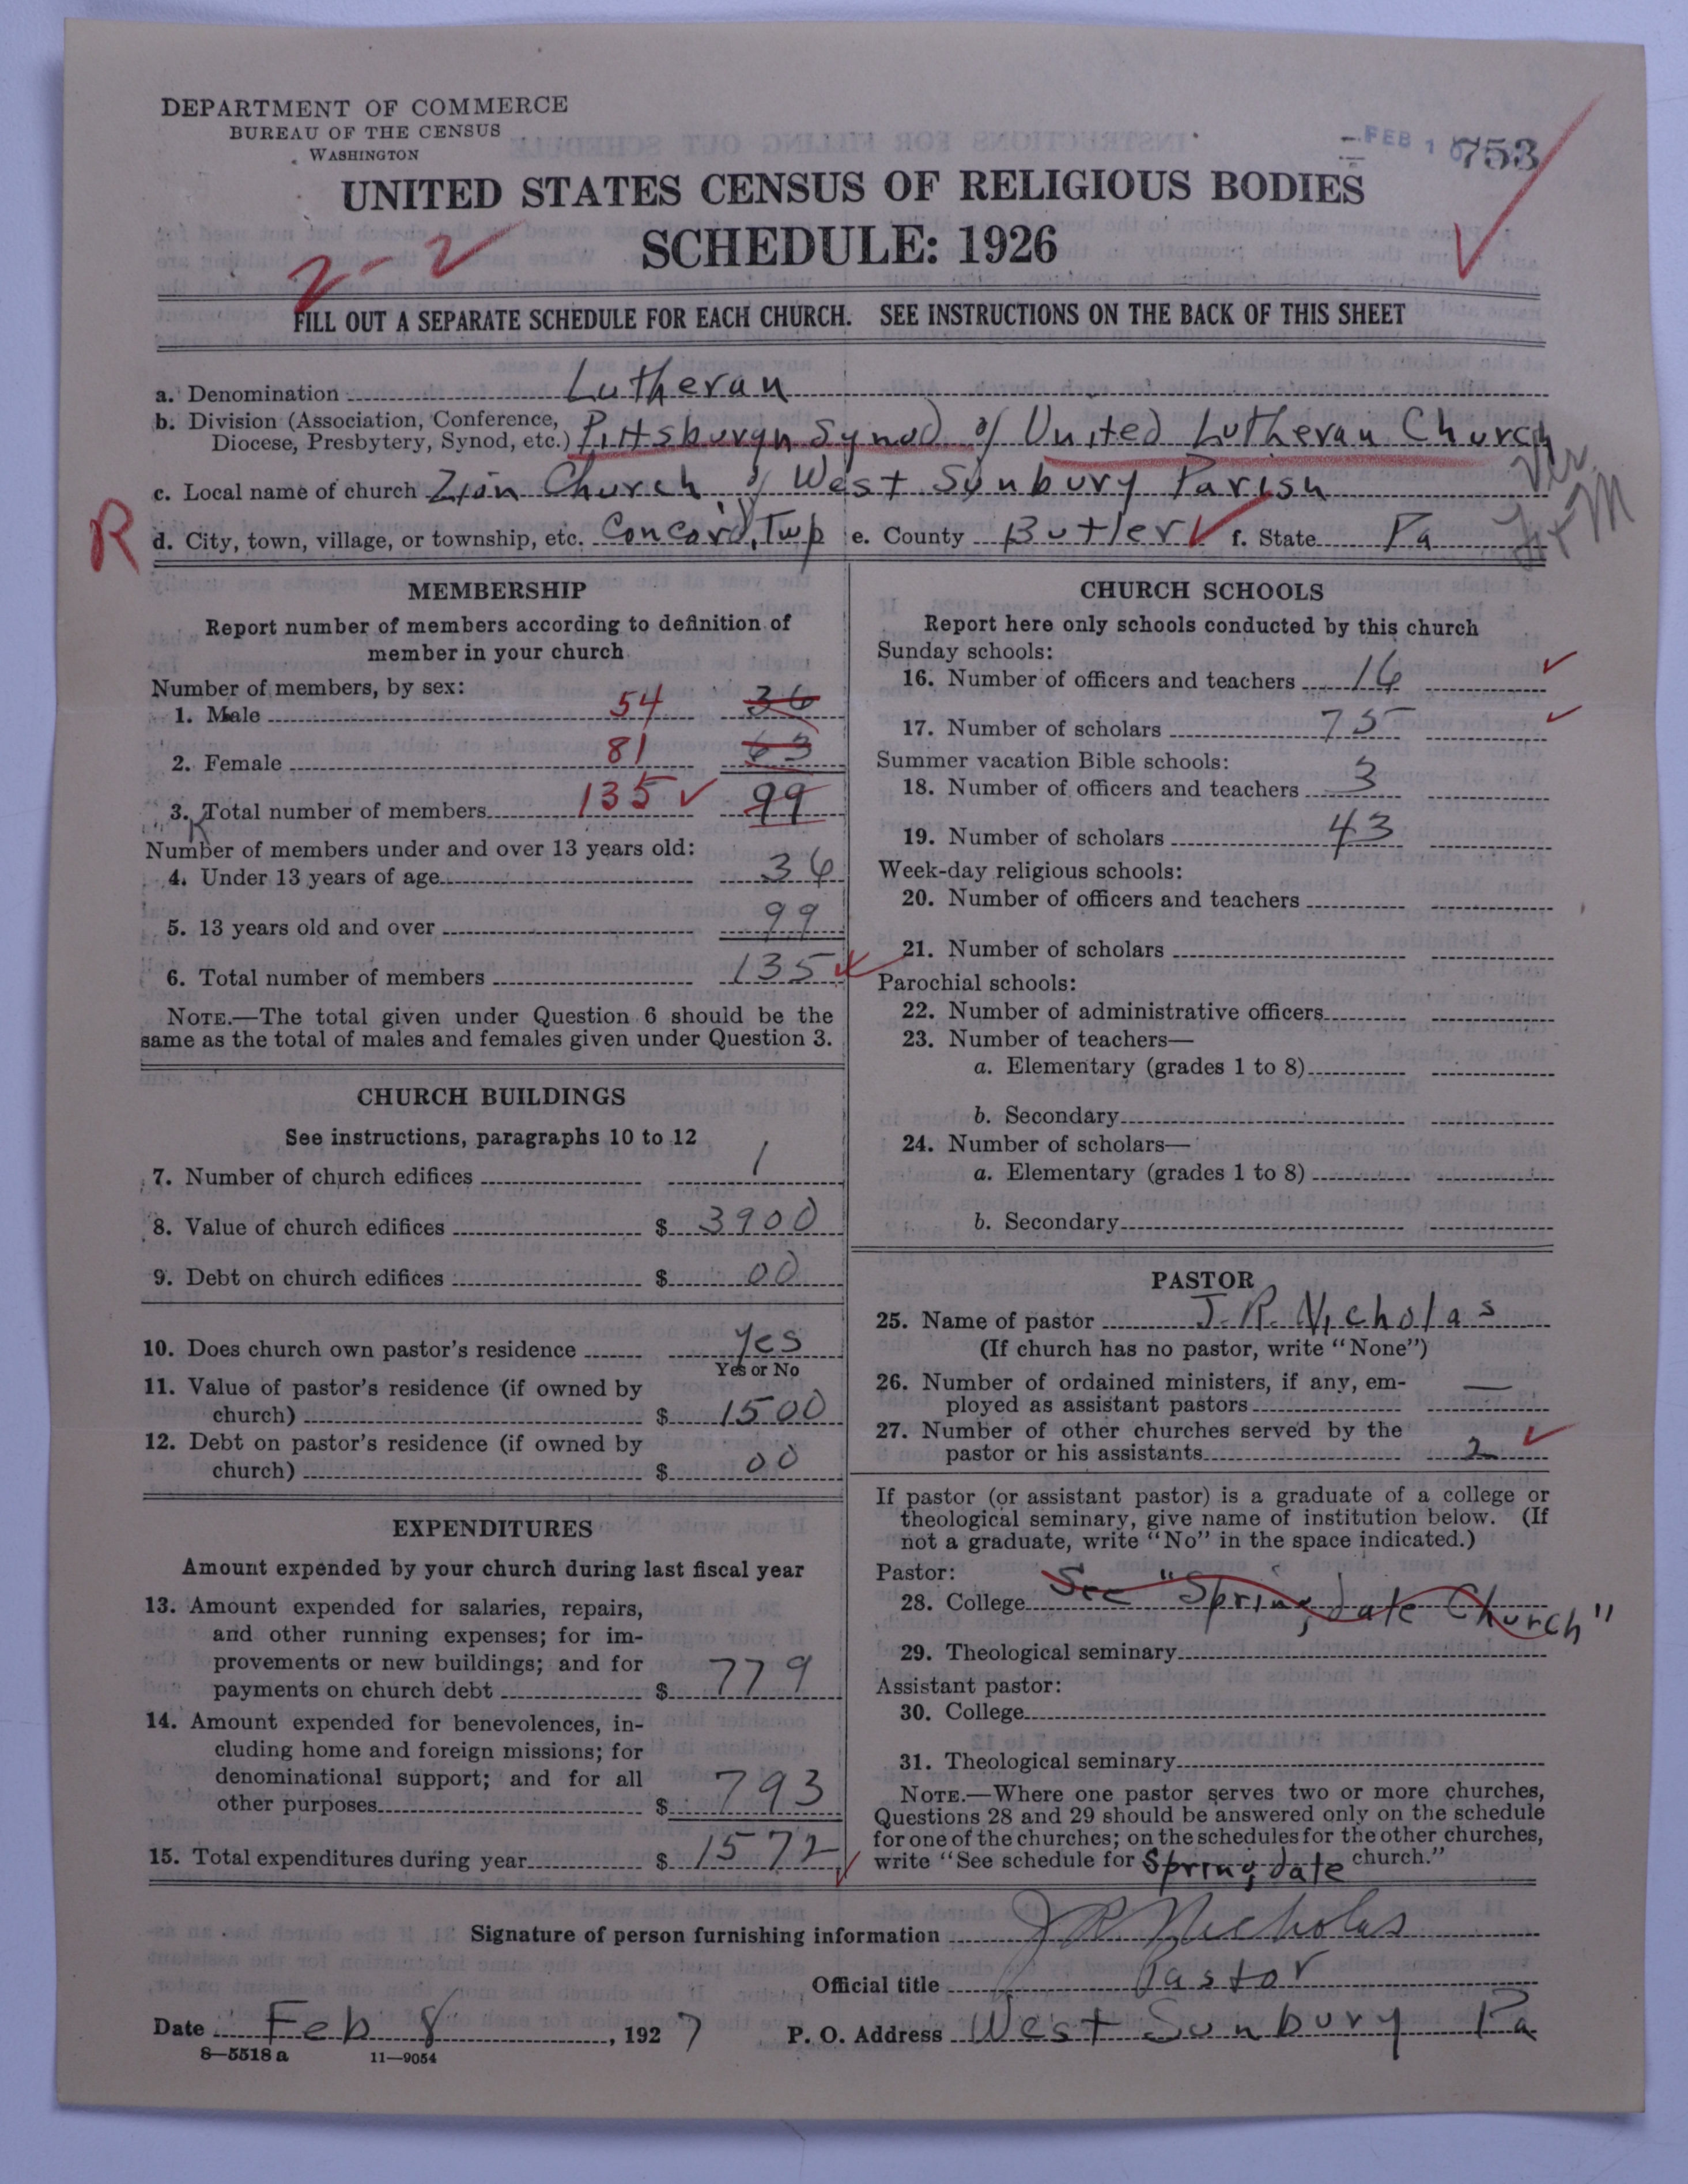 DEPARTMENT OF COMMERCE
BUREAU OF THE CENSUS
WASHINGTON
FEB 10
753
UNITED STATES CENSUS OF RELIGIOUS BODIES
SCHEDULE: 1926
2-2
FILL OUT A SEPARATE SCHEDULE FOR EACH CHURCH. SEE INSTRUCTIONS ON THE BACK OF THIS SHEET
a. Denomination Lutheran
b. Division (Association, Conference,
Diocese, Presbytery, Synod, etc.) Pittsburgh Synod of United Lutheran Church
c. Local name of church Zion Church of West Sunbury Parish
R
d. City, town, village, or township, etc. Concord, Twp e. County Butler f. State Pa
MEMBERSHIP
Report number of members according to definition of
member in your church
Number of members, by sex:
1. Male 54 36
2. Female 81 63
3. Total number of members 135 99
Number of members under and over 13 years old:
4. Under 13 years of age 36
5. 13 years old and over 99
6. Total number of members 135
NOTE.—The total given under Question 6 should be the
same as the total of males and females given under Question 3.
CHURCH BUILDINGS
See instructions, paragraphs 10 to 12
7. Number of church edifices 1
8. Value of church edifices $ 3900
9. Debt on church edifices $ 00
10. Does church own pastor's residence yes
Yes or No
11. Value of pastor's residence (if owned by
church) $ 1500
12. Debt on pastor's residence (if owned by
church) $ 00
EXPENDITURES
Amount expended by your church during last fiscal year
13. Amount expended for salaries, repairs,
and other running expenses; for im-
provements or new buildings; and for
payments on church debt $ 779
14. Amount expended for benevolences, in-
cluding home and foreign missions; for
denominational support; and for all
other purposes $ 793
15. Total expenditures during year $ 1572
CHURCH SCHOOLS
Report here only schools conducted by this church
Sunday schools:
16. Number of officers and teachers 16
17. Number of scholars 75
Summer vacation Bible schools:
18. Number of officers and teachers 3
19. Number of scholars 43
Week-day religious schools:
20. Number of officers and teachers
21. Number of scholars
Parochial schools:
22. Number of administrative officers
23. Number of teachers—
a. Elementary (grades 1 to 8)
b. Secondary
24. Number of scholars—
a. Elementary (grades 1 to 8)
b. Secondary
PASTOR
25. Name of pastor J. R. Nicholas
(If church has no pastor, write "None")
26. Number of ordained ministers, if any, em-
ployed as assistant pastors —
27. Number of other churches served by the
pastor or his assistants 2
If pastor (or assistant pastor) is a graduate of a college or
theological seminary, give name of institution below. (If
not a graduate, write "No" in the space indicated.)
Pastor:
28. College See "Springdate Church"
29. Theological seminary
Assistant pastor:
30. College
31. Theological seminary
NOTE.—Where one pastor serves two or more churches,
Questions 28 and 29 should be answered only on the schedule
for one of the churches; on the schedules for the other churches,
write "See schedule for Springdate church."
Signature of person furnishing information J R Nicholas
Official title Pastor
Date Feb 8, 1927 P. O. Address West Sunbury Pa
8—5518 a 11—9054